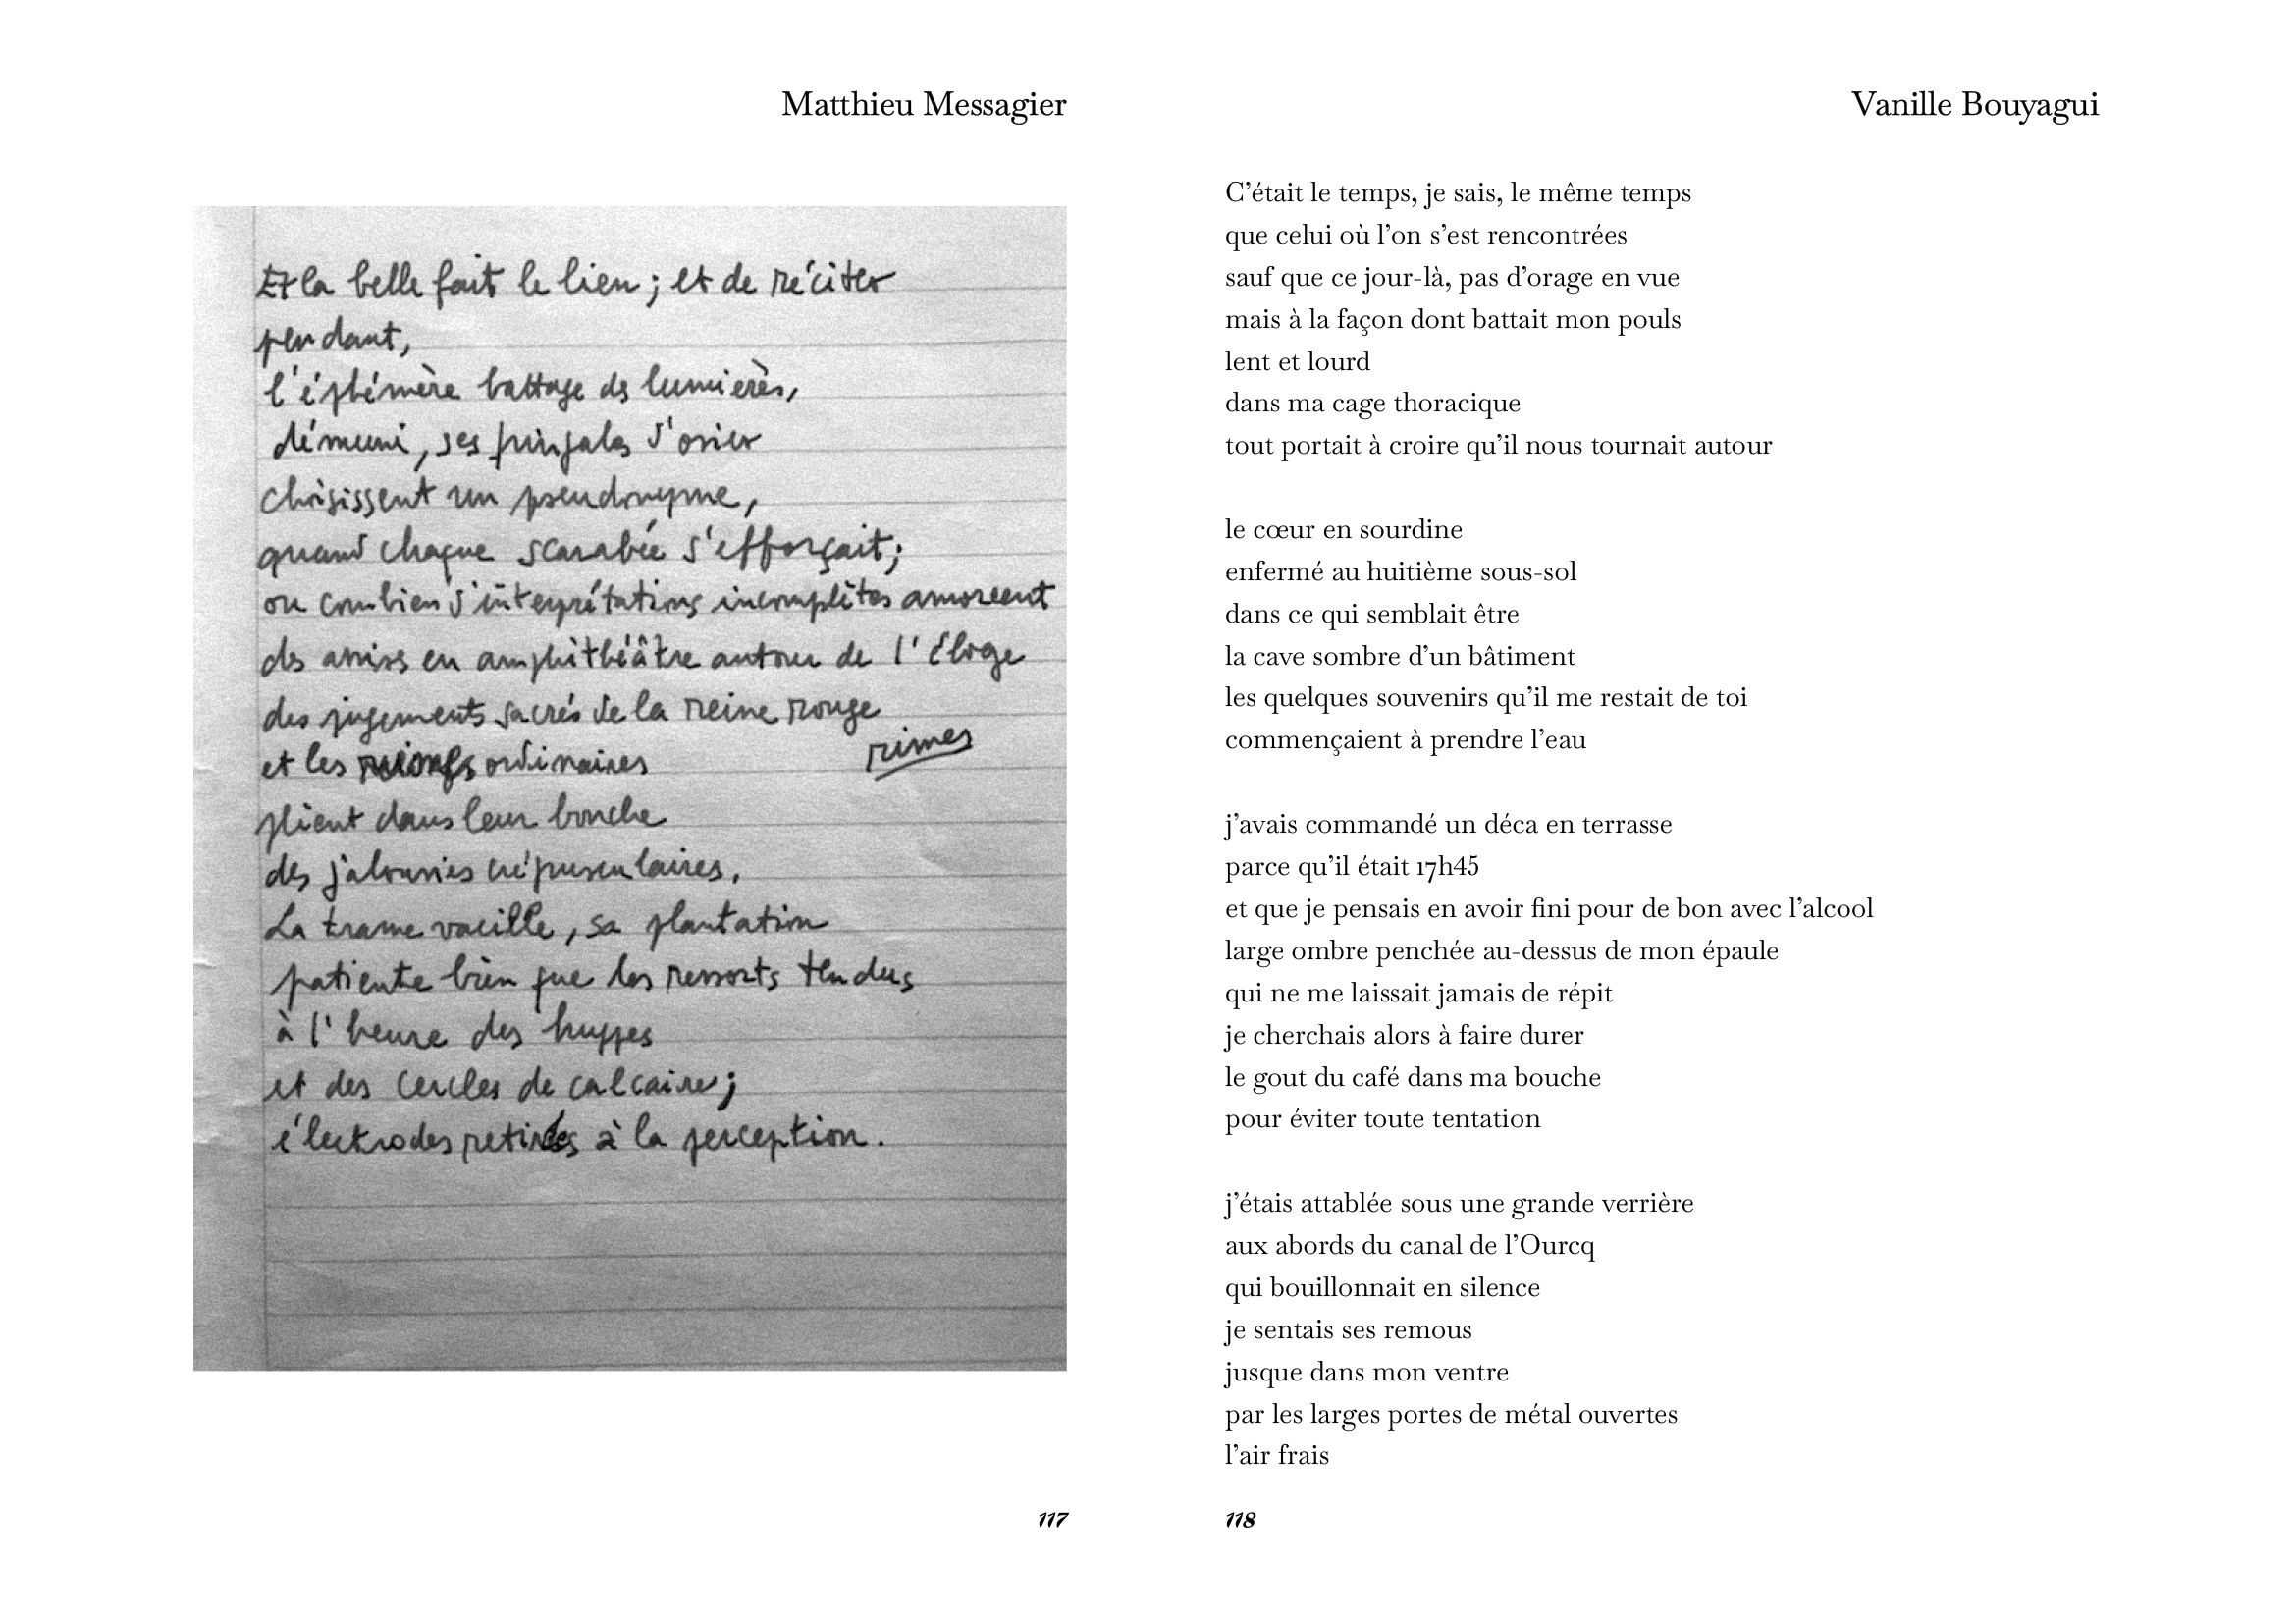 Matthieu Messagier
Et la belle fait le lien ; et de réciter
pendant,
l'éphémère battage des lumières,
démuni, ses fringales d'osier
choisissent un pseudonyme,
quand chaque scarabée s'efforçait ;
ou combien d'interprétations incomplètes amorcent
des assises en amphithéâtre autour de l'éloge
des jugements sacrés de la reine rouge
et les ordinaires
rimes
plient dans leur bouche
des jalousies crépusculaires,
La trame vacille, sa plantation
patiente bien que les ressorts tendus
à l'heure des huppes
et des cercles de calcaire ;
électrodes retirées à la perception.
117
Vanille Bouyagui
C’était le temps, je sais, le même temps
que celui où l’on s’est rencontrées
sauf que ce jour-là, pas d’orage en vue
mais à la façon dont battait mon pouls
lent et lourd
dans ma cage thoracique
tout portait à croire qu’il nous tournait autour
le cœur en sourdine
enfermé au huitième sous-sol
dans ce qui semblait être
la cave sombre d’un bâtiment
les quelques souvenirs qu’il me restait de toi
commençaient à prendre l’eau
j’avais commandé un déca en terrasse
parce qu’il était 17h45
et que je pensais en avoir fini pour de bon avec l’alcool
large ombre penchée au-dessus de mon épaule
qui ne me laissait jamais de répit
je cherchais alors à faire durer
le gout du café dans ma bouche
pour éviter toute tentation
j’étais attablée sous une grande verrière
aux abords du canal de l’Ourcq
qui bouillonnait en silence
je sentais ses remous
jusque dans mon ventre
par les larges portes de métal ouvertes
l’air frais
118